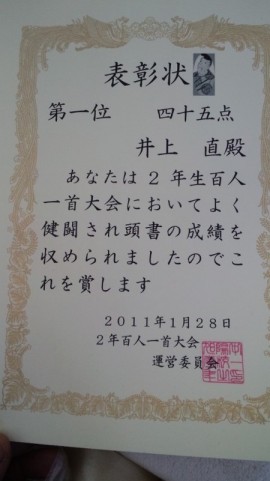 表彰状
第一位　四十五点
井上　直殿
あなたは２年生百人
一首大会においてよく
健闘され頭書の成績を
収められましたのでこ
れを賞します
２０１１年１月２８日
２年百人一首大会
運営委員会